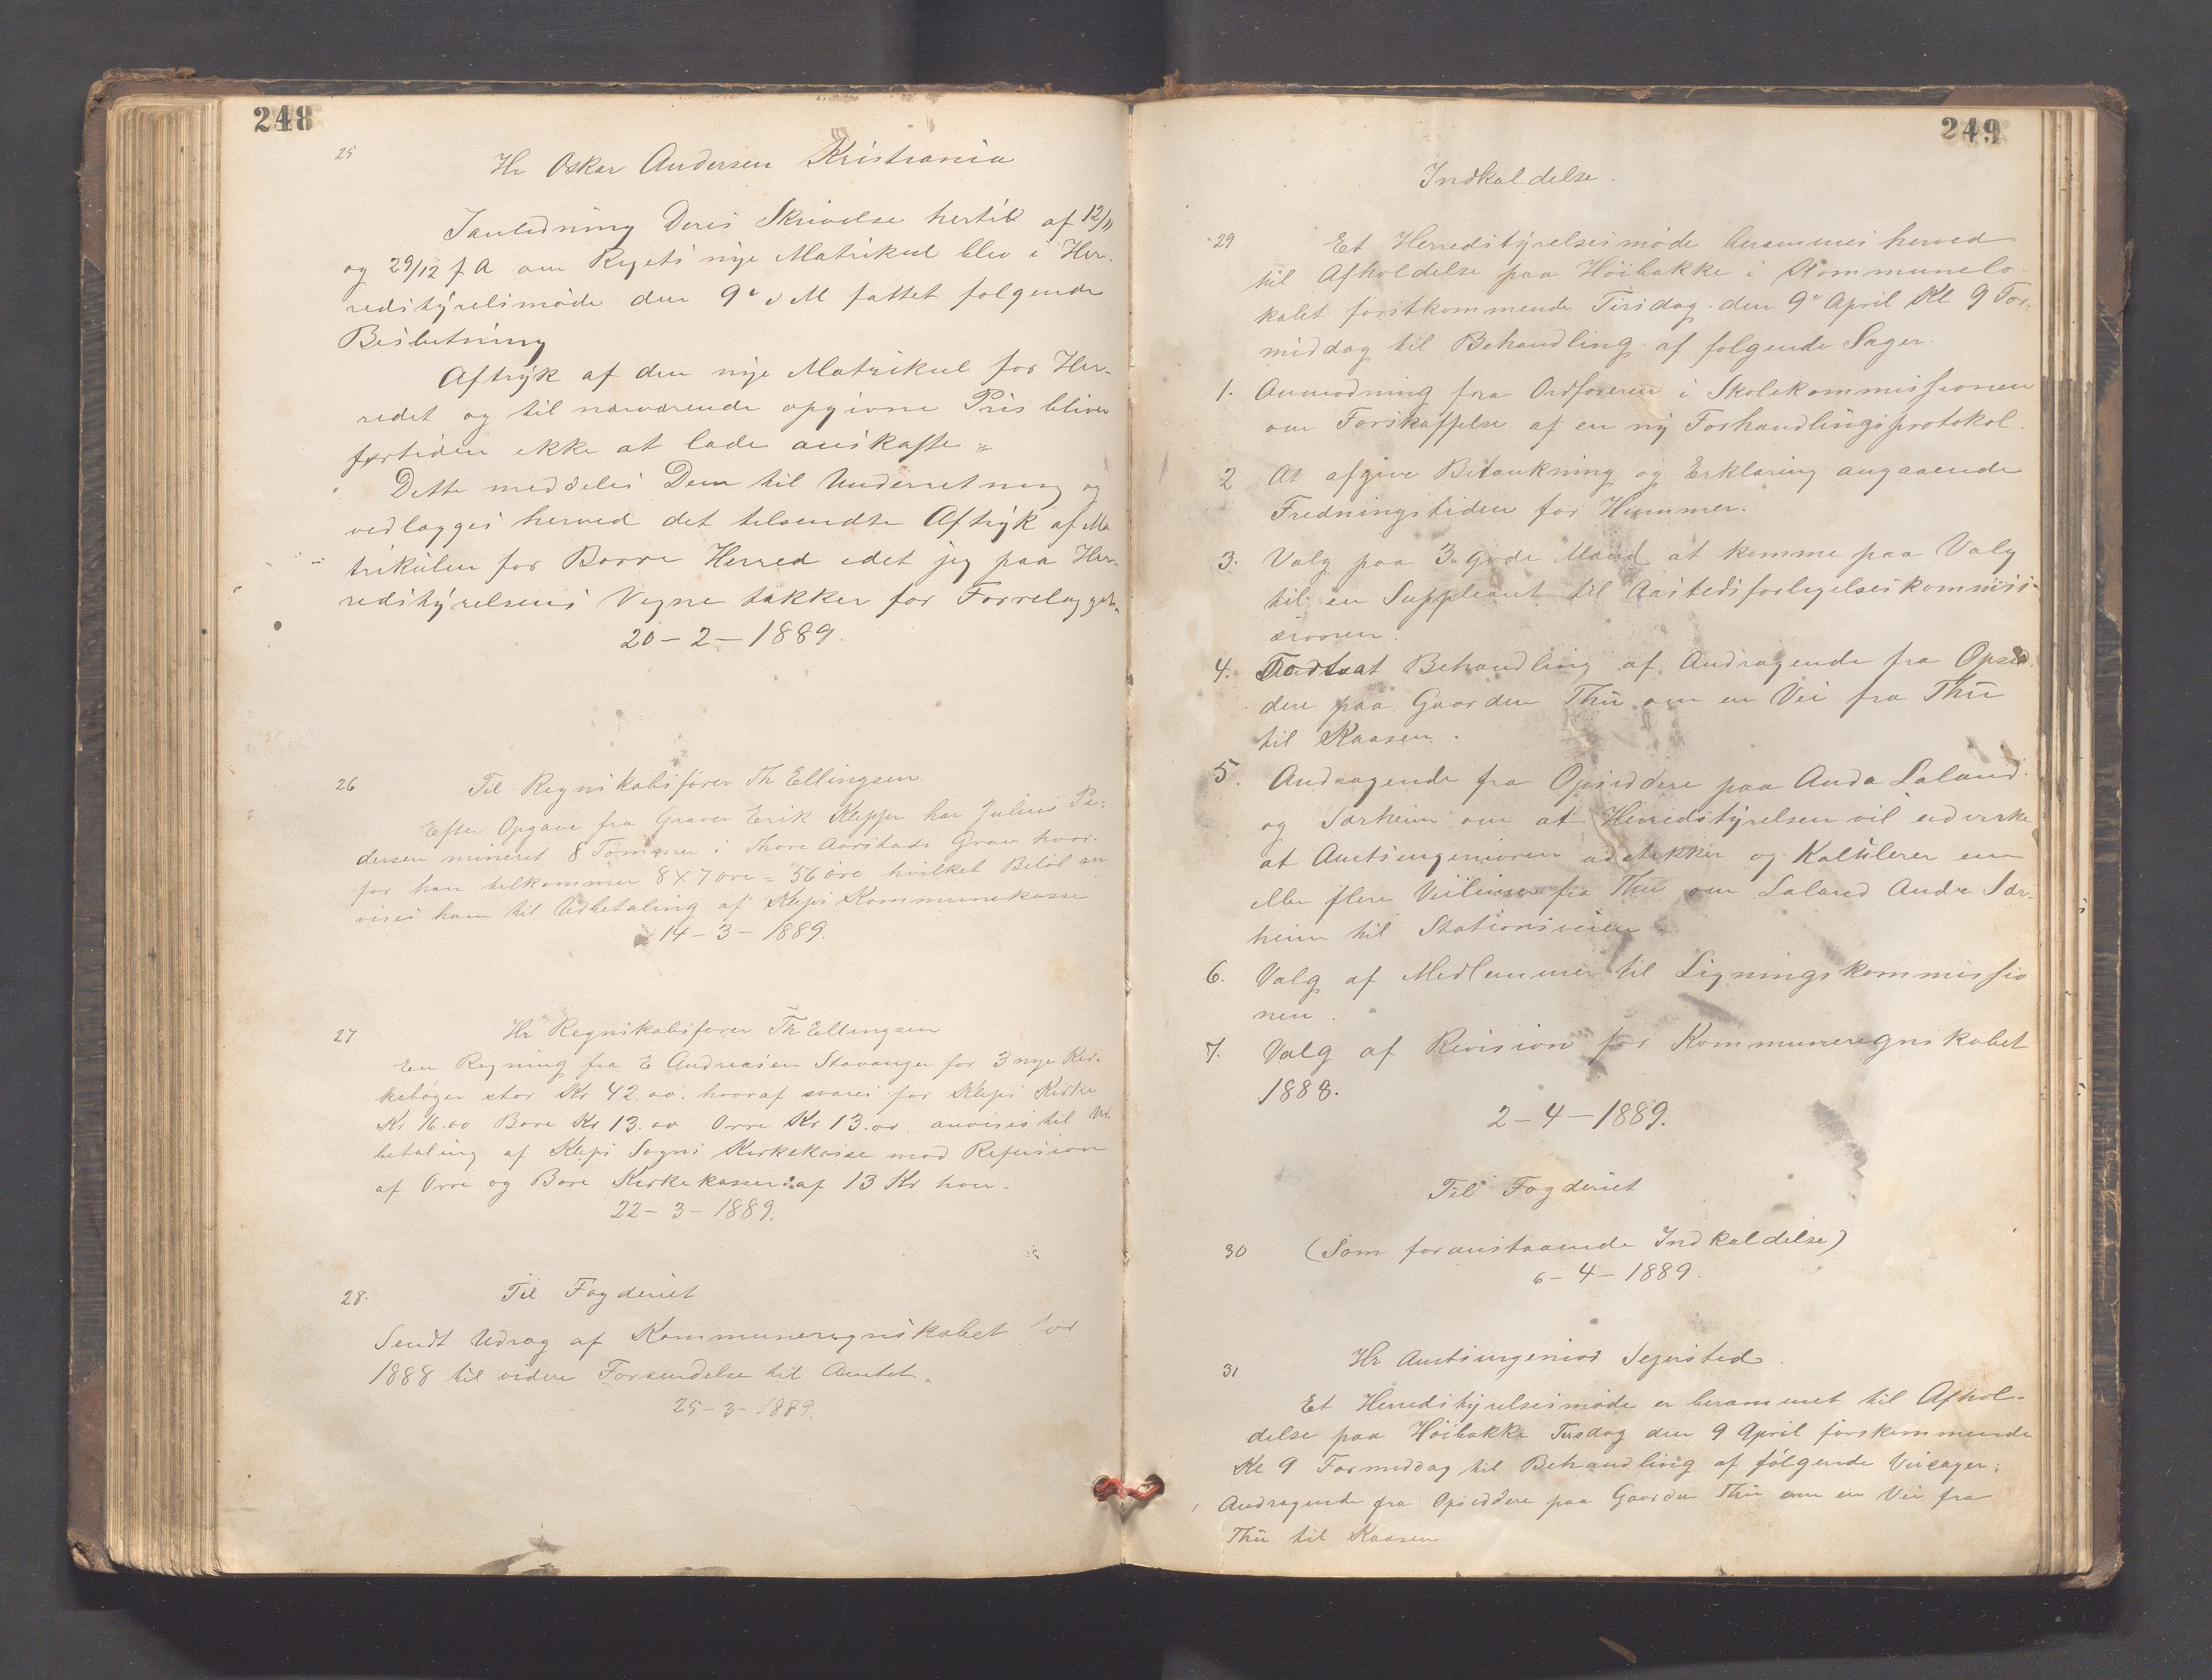 248
25
Hr Oskar Andersen Kristiania
Ianledning Deres Skrivelse hertil af 12/11
og 29/12 f A om Rigets nye Matrikul blev i Her-
redstyrelsmöde den 9de d M fattet folgende
Beslutning
Aftryk af den nye Matrikul for Her-
redet og til nærværende opgivne Pris bliver
fortiden ikke at lade anskaffe "
Dette meddeles Dem til Underretning og
vedlægges herved det tilsendte Aftryk af Ma
trikulen for Borre Herred idet jeg paa Her-
redstyrelsens Vegne takker for Forrelægget.
20-2-1889.
26
Til Regnskabsförer Th Ellingsen
Efter Opgave fra Graver Erik Klepper har Julius Pe-
dersen mineret 8 Tommer i Thore Aarstads Grav hvor-
for han tilkommer 8 x 7 öre = 56 öre hvilket Belöb an
vises ham til Udbetaling af Kleps Kommunekasse
14-3-1889.
27
Hr Regnskabsförer Th Ellingsen
En Regning fra E Andreasen Stavanger for 3 nye Kir-
keböger stor Kr 42.00. hvoraf svares for Kleps Kirke
Kr 16.00 Bore Kr 13.00 Orre Kr 13.00 anvises til Ud-
betaling af Kleps Sogns Kirkekasse mod Refusion
af Orre og Bore Kirkekasser af 13 Kr hver.
22-3-1889.
28.
Til Fogderiet
Sendt Udrag af Kommuneregnskabet for
1888 til videre Forsendelse til Amtet.
25-3-1889.
249
Indkaldelse.
29
Et Herredstyrelsesmöde berammes herved
til Afholdelse paa Höibakke i Kommunelo-
kalet förstkommende Tirsdag den 9de April Kl 9 For-
middag til Behandling af folgende Sager.
1. Anmodning fra Ordföreren i Skolekommissionen
om Forskaffelse af en ny Forhandlingsprotokol.
2 At afgive Betænkning og Erklæring angaaende
Fredningstiden for Hummer.
3. Valg paa 3 gode Mænd at komme paa Valg
til en Suppleant til Aastedsforligelseskommis-
sionen.
4. Fortsat Behandling af Andragende fra Opsid-
dere paa Gaarden Thu om en Vei fra Thu
til Kaasen.
5. Andragende fra Opsiddere paa Anda Laland
og Særheim om at Herredstyrelsen vil udvirke
at Amtsingenioren udstikker og Kalkulerer en
eller flere Veilinier fra Thu om Laland Anda Sær-
heim til Stationsveien
6. Valg af Medlemmer til Ligningskommissio
nen.
7. Valg af Revision for Kommuneregnskabet
1888.
2-4-1889.
Til Fogderiet
30 (Som foranstaaende Indkaldelse)
6-4-1889.
31 Hr Amtsingeniör Segersted.
Et Herredstyrelsesmöde er berammet til Afhol-
delse paa Höibakke Tirsdag den 9 April förskommende
Kl 9 Formiddag til Behandling af fölgende Veisager:
1 Andragende fra Opsiddere paa Gaarden Thu om en Vei fra
Thu til Kaasen